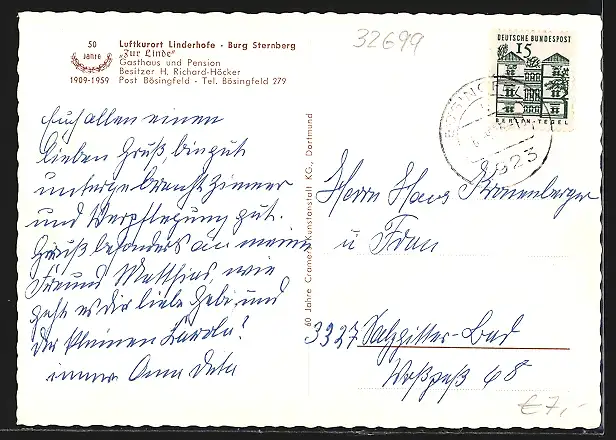 50 Jahre 1909-1959
Luftkurort Linderhofe - Burg Sternberg
"Zur Linde"
Gasthaus und Pension
Besitzer H. Richard-Höcker
Post Bösingfeld - Tel. Bösingfeld 279
32699
DEUTSCHE BUNDESPOST
15
BERLIN-TEGEL
4923
60 Jahre Cramers Kunstanstalt KG., Dortmund
Euch allen einen
lieben Gruß, bin gut
untergebracht Zimmer
und Verpflegung gut.
Gruß besonders an meinen
Freund Matthias, wie
geht es dir liebe Gabi, und
der kleinen Carola?
immer
Herrn Hans Kronenberger
u Frau
3327 Salzgitter-Bad
68
€ 7,-